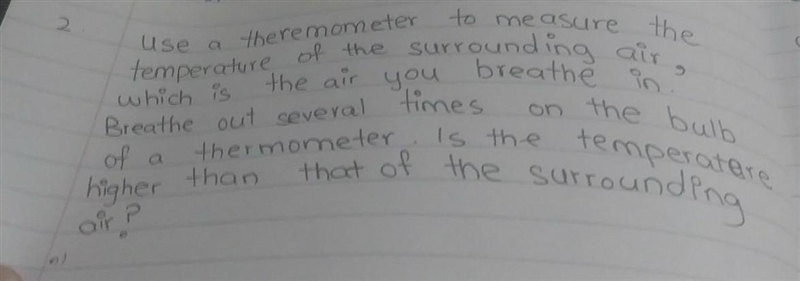 2. Use a theremometer to measure the
temperature of the surrounding air,
which is the air you breathe in.
Breathe out several times on the bulb
of a thermometer. Is the temperatere
higher than that of the surrounding
air?